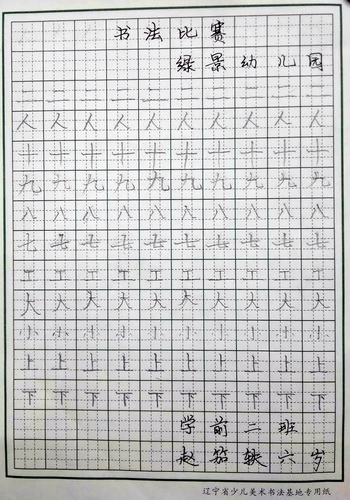 书法比赛
绿景幼儿园
二二二二二二二二二二
人人人人人人人人人人
十十十十十十十十十十
九九九九九九九九九九
八八八八八八八八八八
七七七七七七七七七七
工工工工工工工工工工
大大大大大大大大大大
小小小小小小小小小小
上上上上上上上上上上
下下下下下下下下下下
学前二班
赵笳轶六岁
辽宁省少儿美术书法基地专用纸